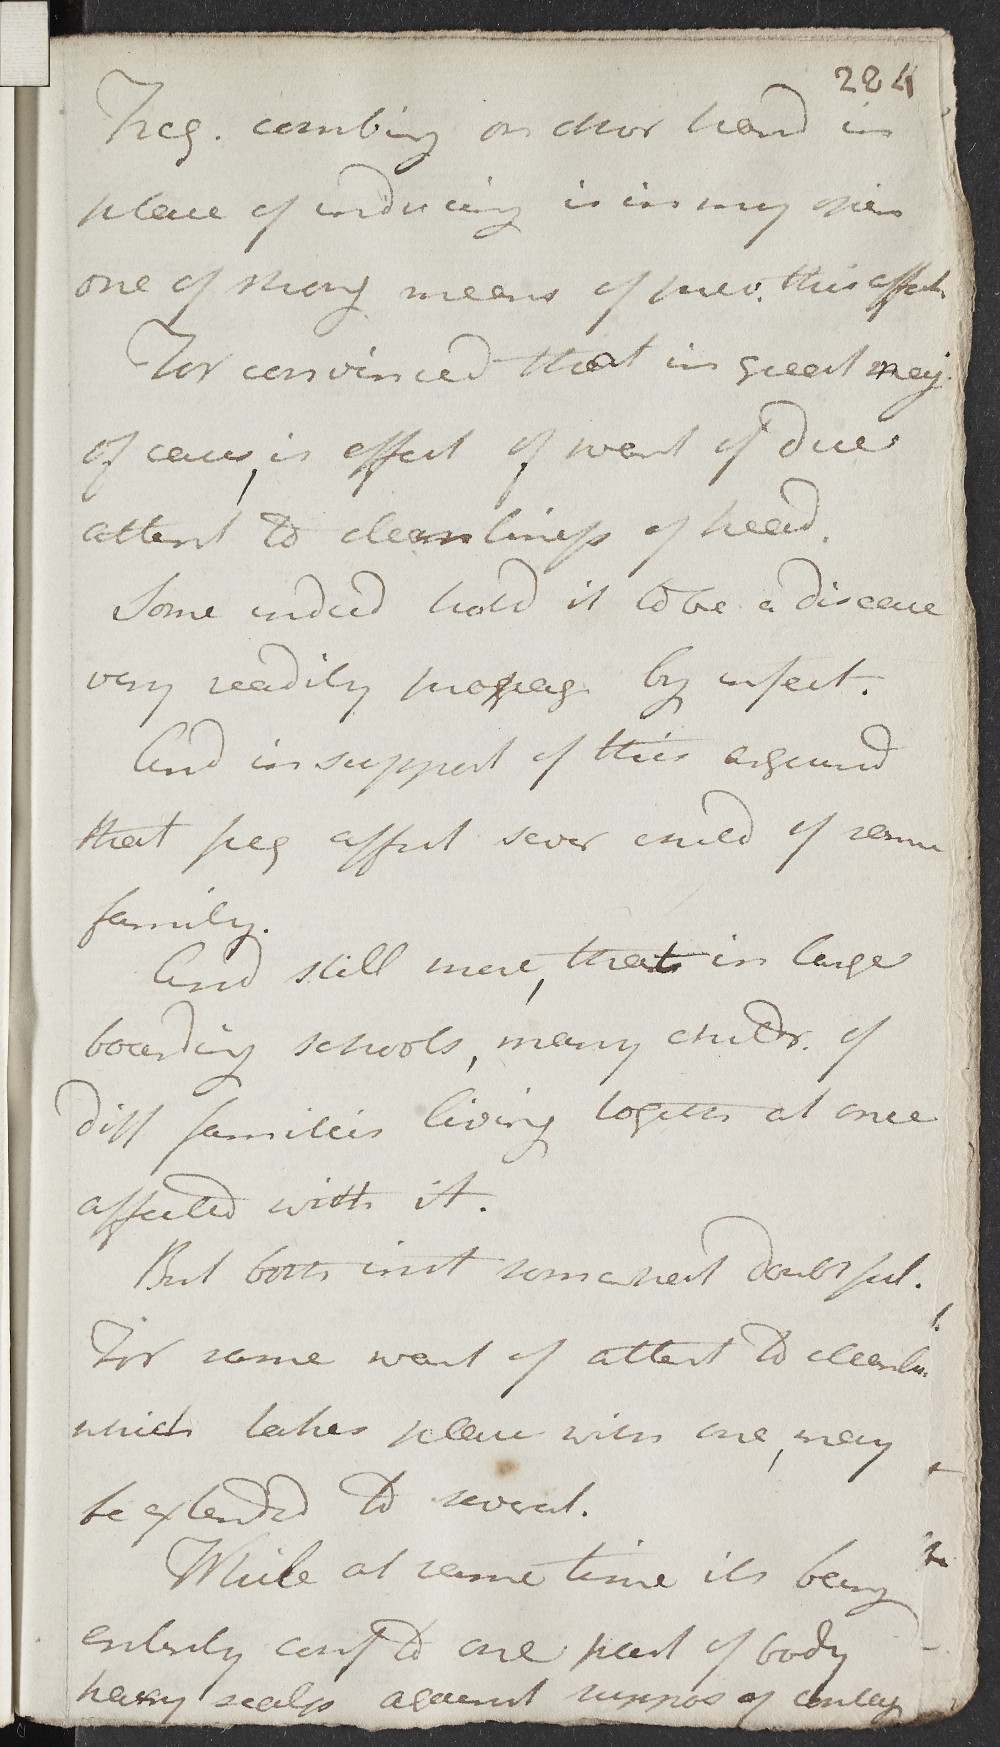 284
Freq. combing on other hand in
place of inducing is in my opin
one of strong means of prev. this affect.
For convinced that in great maj.
of cases, is effect of want of due
attent to cleanliness of head.
Some indeed hold it to be a disease
very readily propag by infect.
And in support of this argued
that freq affect sever child of same
family.
And still more, that in large
boarding schools, many childr. of
diff families living togeth at once
affected with it.
But both inst somewhat doubtful.
For same want of attent to cleanlin.
which takes place with one, may
be extended to several.
While at same time its being
entirely conf to one part of body
hairy scalp against suppos of contag